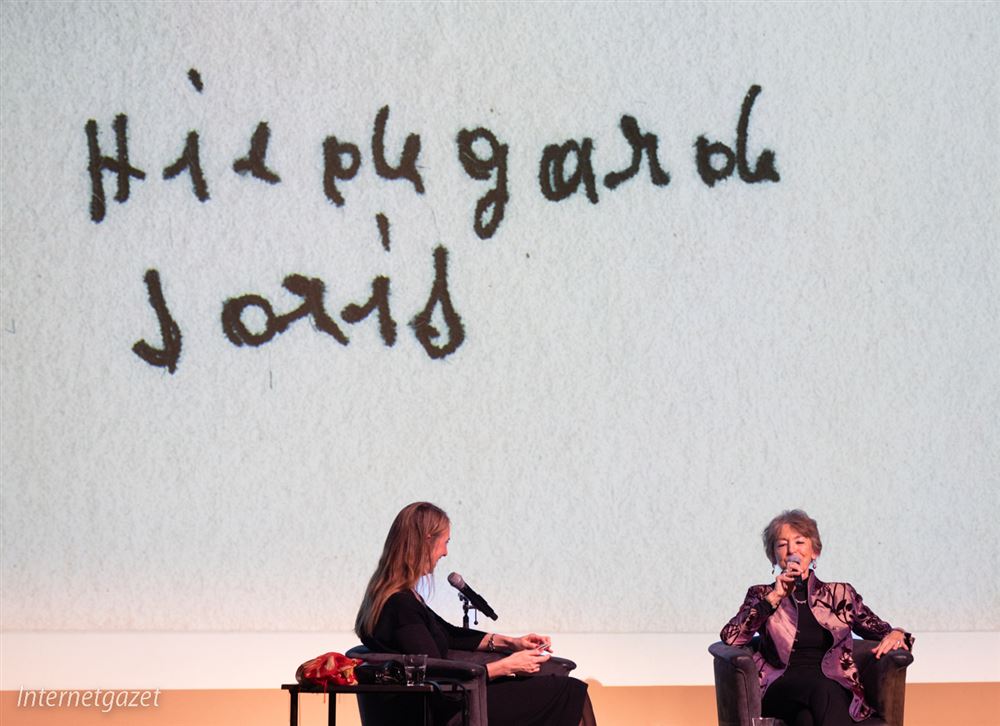 Hildegarde
Joris
Internetgazet